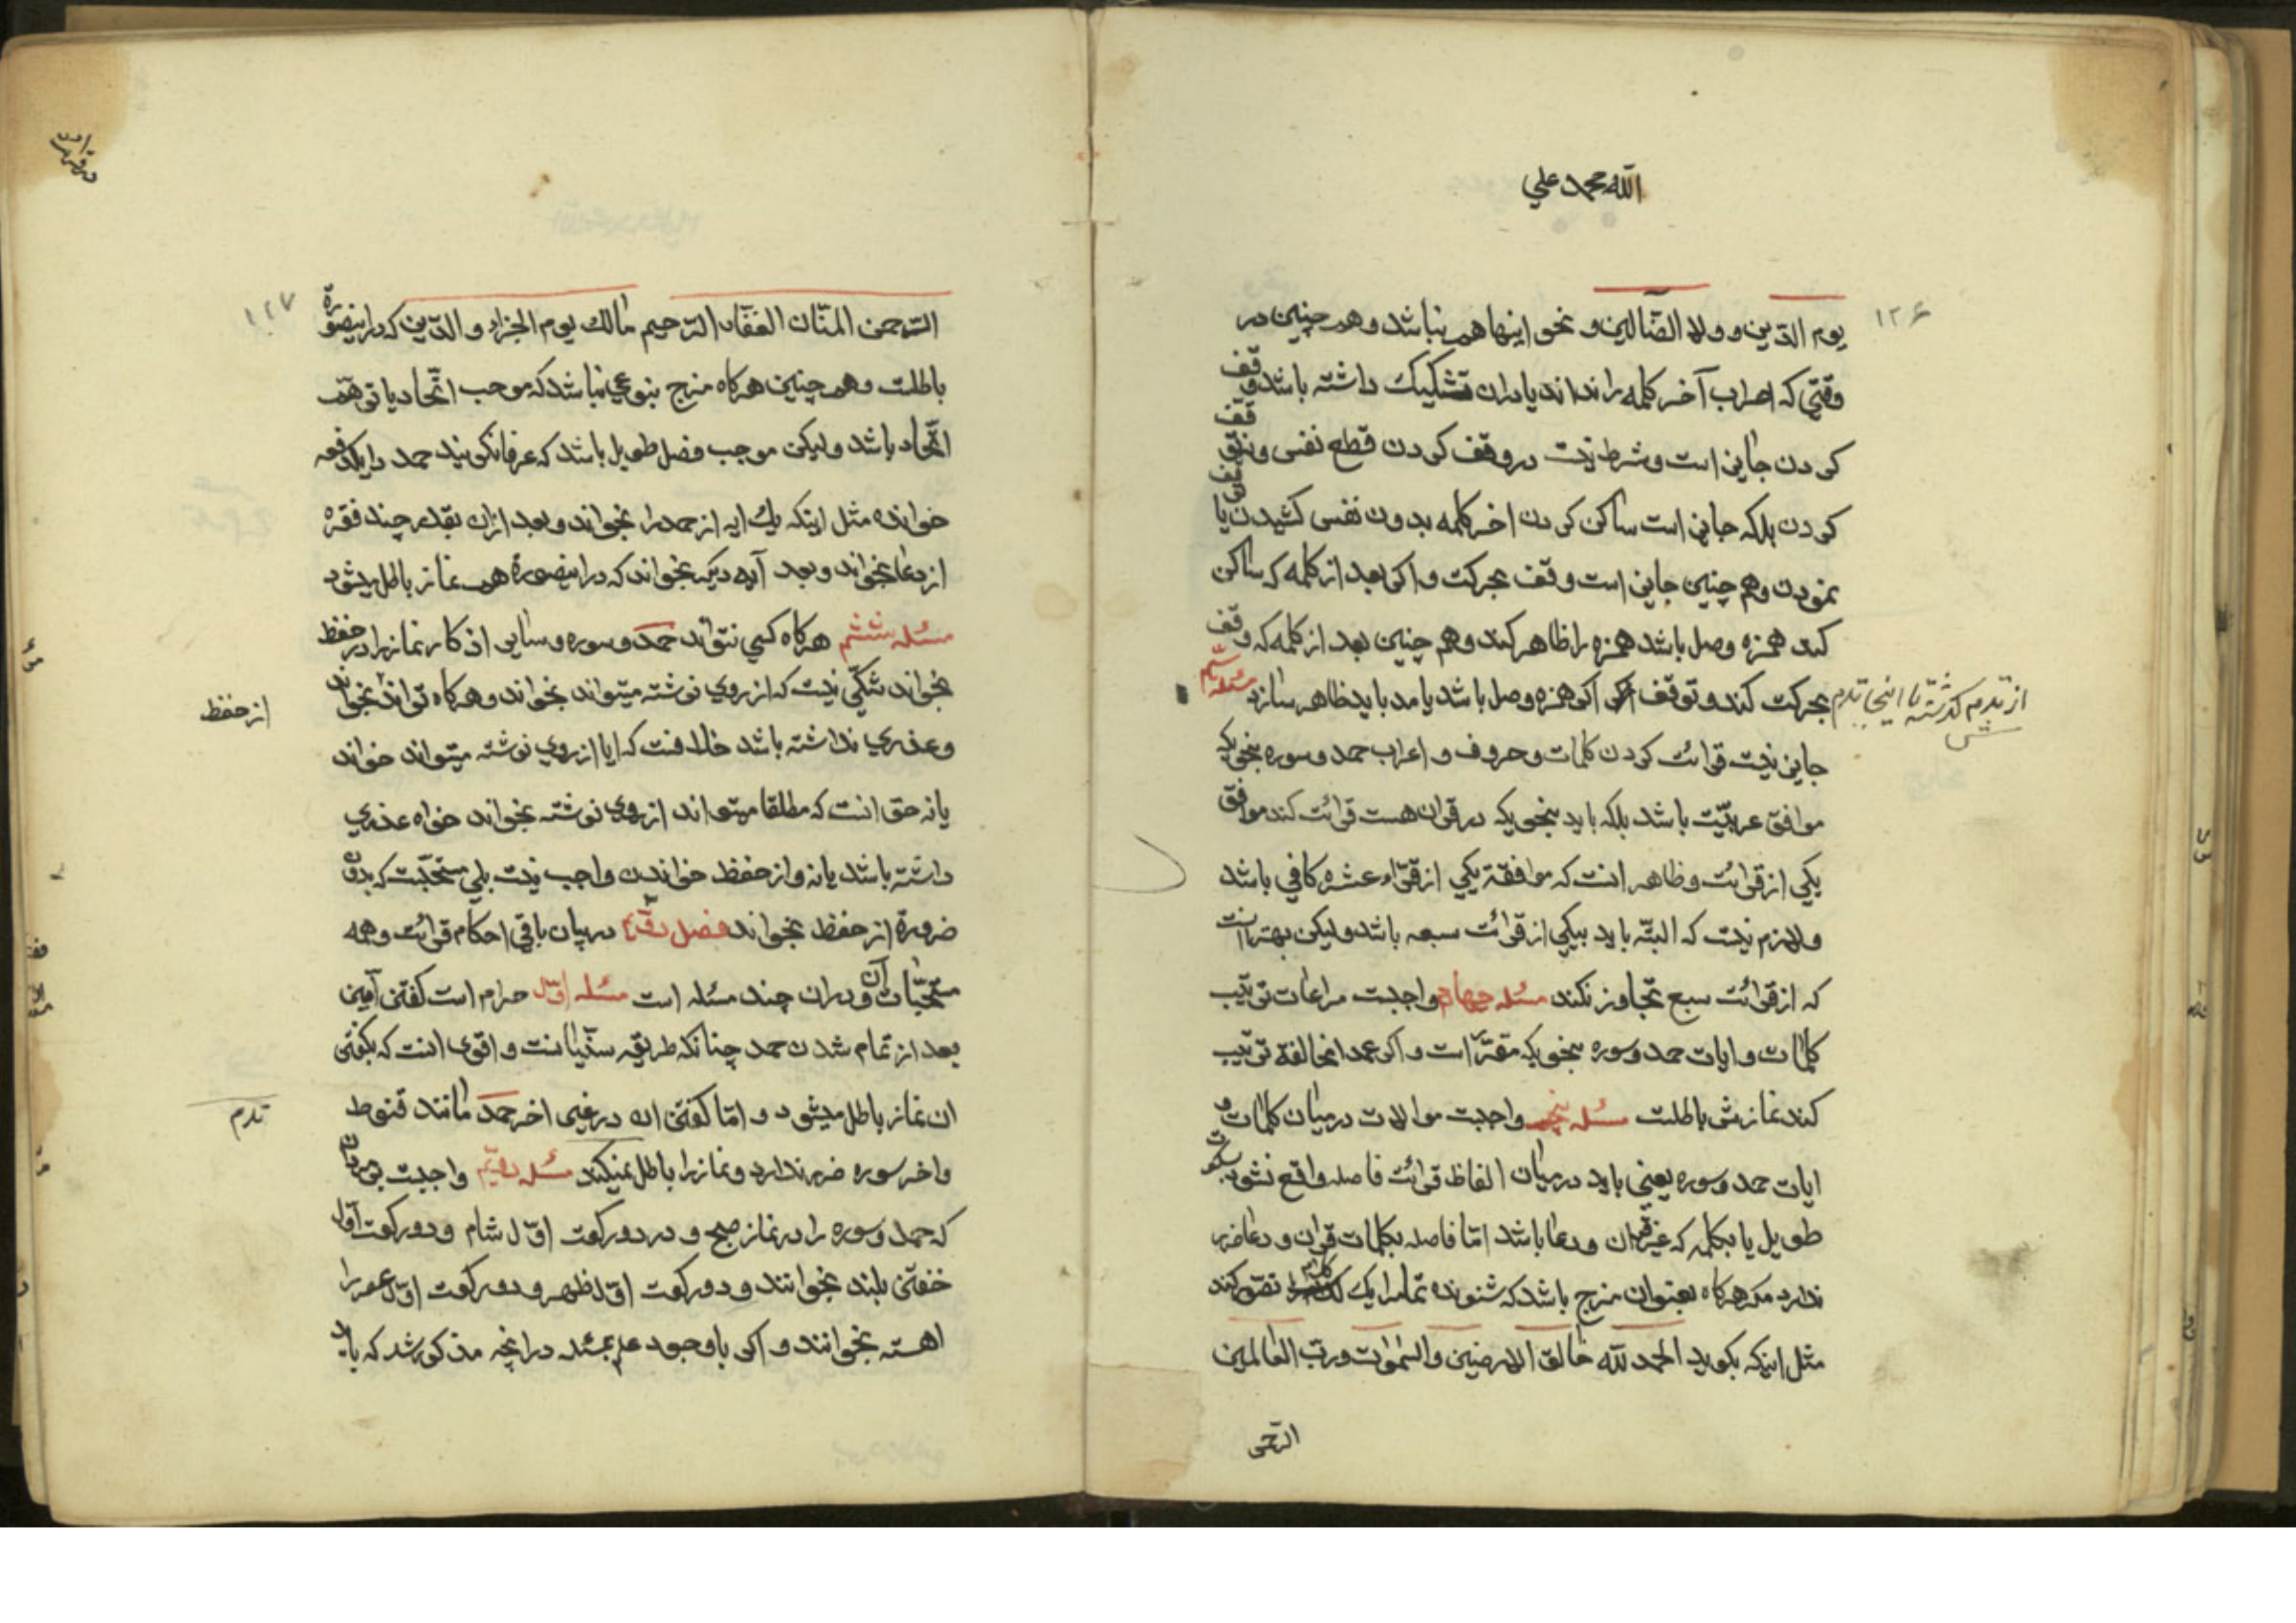 الله محمد علي
۱۲۶
یوم الدین و ولا الضالین و نحو اینها هم بنا شد و هم چنین در
وقتی که اعراب آخر کلمه را نداند یا دران تشکیک داشته باشد وقف
کردن جایز است و شرط نیست در وقف کردن قطع نفس و توقف
کردن بلکه جایز است ساکن کردن اخر کلمه بدون نفس کشیدن یا
نمودن و هم چنین جایز است وقف بحرکت و اکر بعد از کلمه که ساکن
کند همزه وصل باشد همزه را ظاهر کند و هم چنین بعد از کلمه که وقف
بحرکت کند و توقف اکر همزه وصل باشد یا مد باید ظاهر سازد مسئله سیم
از ترم کذشته تا اینجا ترم
جایز نیست قرائت کردن کلمات و حروف و اعراب حمد و سوره بنحویکه
موافق عربیّت باشد بلکه باید بنحویکه در قران هست قرائت کند موافق
یکی از قرائت و ظاهر انست که موافقة یکی از قرّاء عشره کافی باشد
و لازم نیست که البتّه باید بیکی از قرائت سبعه باشد و لیکن بهتر انست
که از قرائت سبع تجاوز نکند مسئله چهارم واجبت مراعات ترتیب
کلمات و ایات حمد و سوره بنحویکه مقرّر است و اکر عمدا مخالفة ترتیب
کند نمازش باطلت مسئله پنجم واجبت موالات در میان کلمات و
ایات حمد و سوره یعنی باید در میان الفاظ قرائت فاصله واقع نشود بسکوت
طویل یا بکلمه که غیر قران و دعا باشد امّا فاصله بکلمات قران و دعا ضرر
ندارد مکر هرکاه بعنوان مزج باشد که شنونده تمام را یک کلام تصوّر کند
مثل اینکه بکوید الحمد لله خالق الارضین و السّمٰوٰت و ربّ العالمین
الرّحمن
در قرائت
۱۲۷
الرّحمن المنّان الغفّار الرّحیم مالک یوم الجزاء و الدّین که در اینصورة
باطلت و هم چنین هرکاه مزج بنوعی نباشد که موجب اتّحاد یا توهّم
اتّحاد باشد و لیکن موجب فصل طویل باشد که عرفا نکویند حمد را یکدفعه
خوانده مثل اینکه یک ایه از حمد را بخواند و بعد ازان بقدر چند فقره
از دعا بخواند و بعد آیه دیکر بخواند که در اینصورة هم نماز باطل میشود
مسئله ششم هرکاه کسی نتواند حمد و سوره و سایر اذکار نماز را در حفظ
بخواند شکّی نیست که از روی نوشته میتواند بخواند و هرکاه تواند بخواند
از حفظ
و عذری نداشته باشد خلافست که ایا از روی نوشته میتواند خواند
یا نه حق انست که مطلقا میتواند از روی نوشته بخواند خواه عذری
داشته باشد یا نه و از حفظ خواندن واجب نیست بلی مستحبّت که بدون
ضرورة از حفظ بخواند فصل در بیان باقی احکام قرائت و همه
مستحبّات آن و دران چند مسئله است مسئله اوّل حرام است کفتن آمین
بعد از تمام شدن حمد چنانکه طریقه سنّیانست و اقوی انست که بکفتن
ان نماز باطل میشود و امّا کفتن ان در غیر اخر حمد مانند قنوط
ترم
و اخر سوره ضرر ندارد و نماز را باطل نمیکند مسئله دویّم واجبت بر مردان
که حمد و سوره را در نماز صبح و در دو رکعت اوّل شام و دو رکعت اوّل
خفتن بلند بخوانند و دو رکعت اوّل ظهر و دو رکعت اوّل عصر را
اهسته بخوانند و اکر با وجود علم بمسئله در انچه مذکور شد که باید